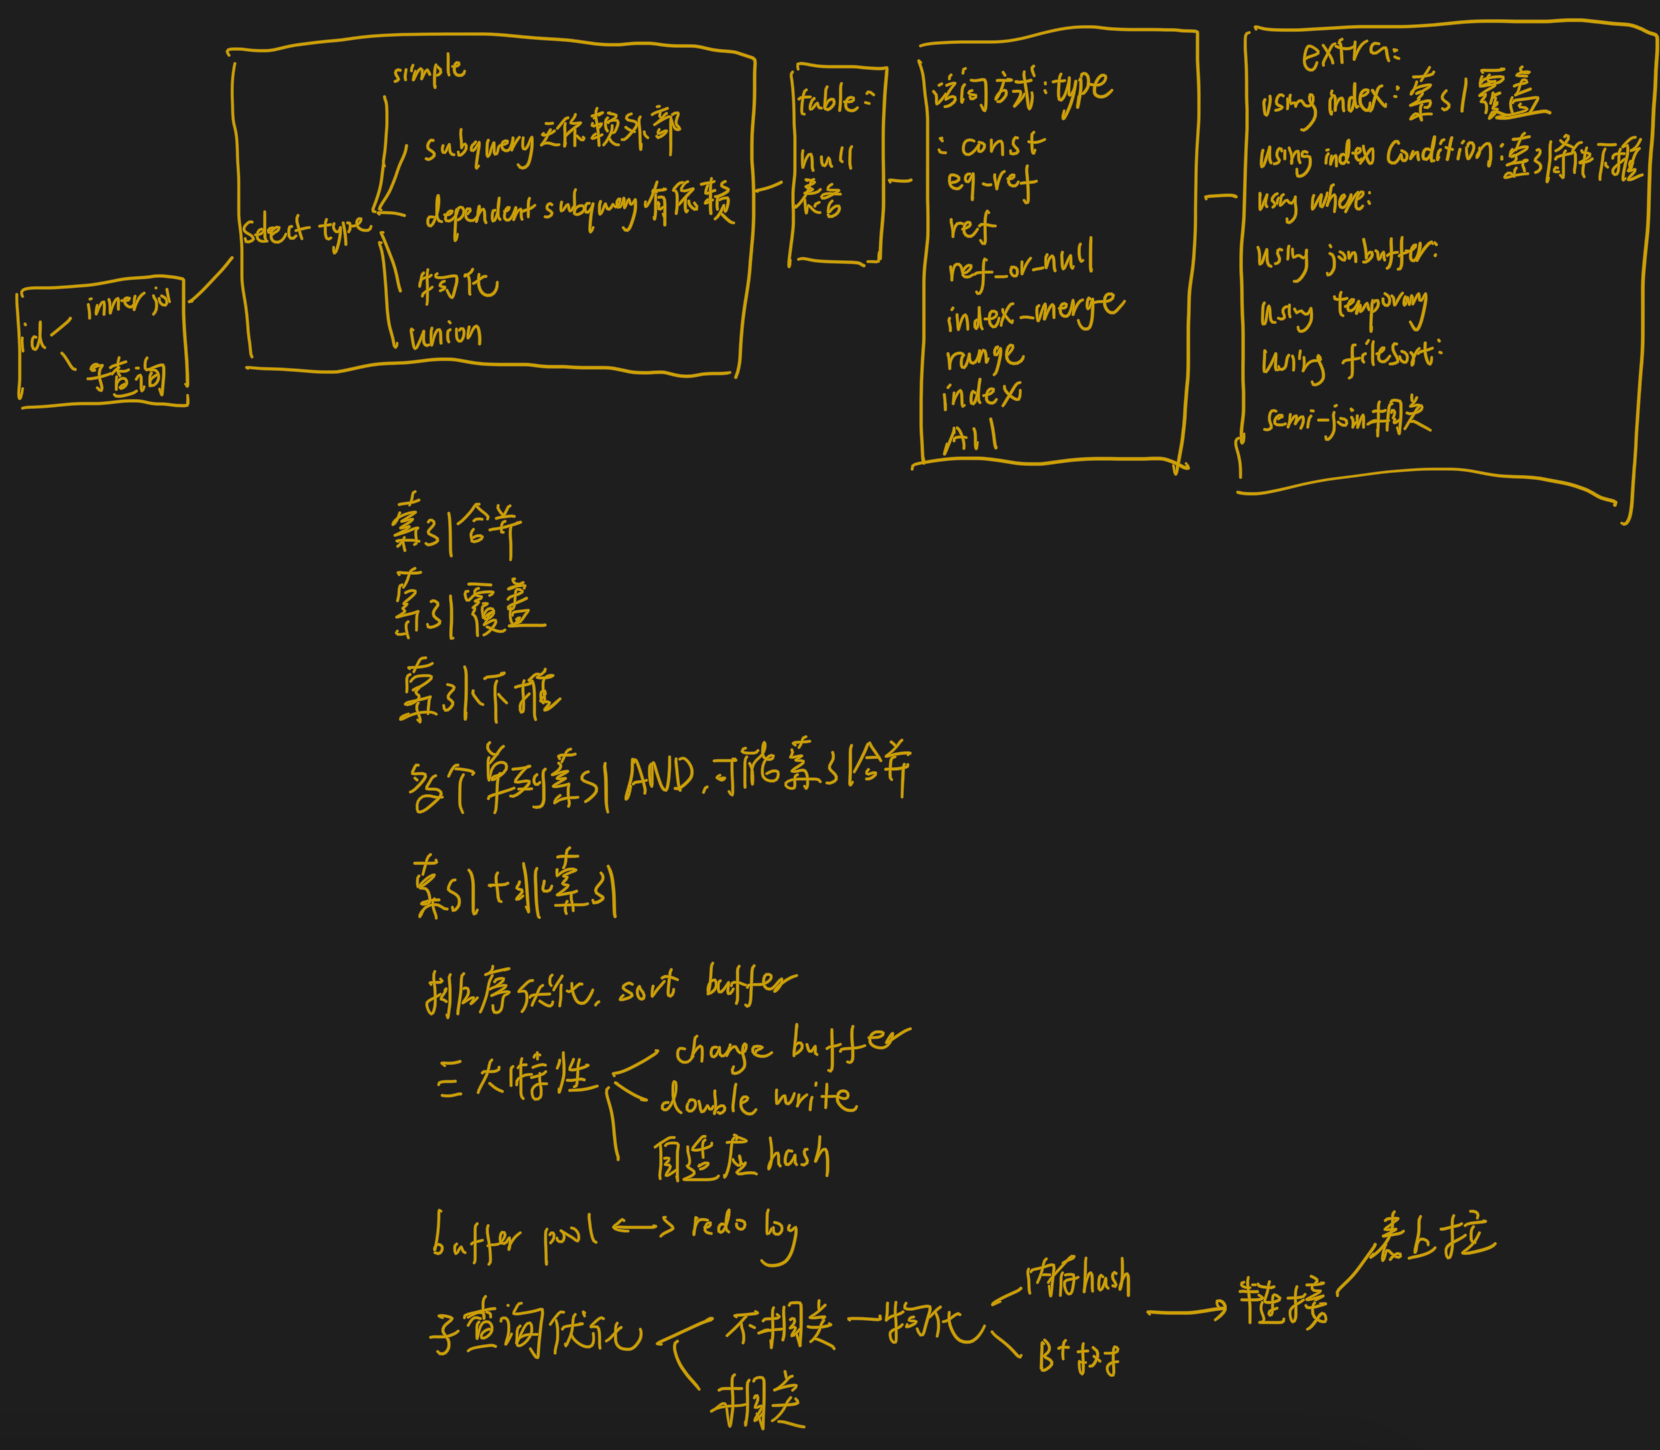 id
inner joi
子查询
select type
simple
subquery 无依赖外部
dependent subquery 有依赖
物化
union
table:
null
表名
访问方式:type
: const
eq_ref
ref
ref_or_null
index_merge
range
index
All
extra:
using index:索引覆盖
using index Condition:索引条件下推
using where:
using joinbuffer:
using temporary
using filesort:
semi-join相关
索引合并
索引覆盖
索引下推
多个单列索引AND,可能索引合并
索引+非索引
排序优化. sort buffer
三大特性
change buffer
double write
自适应hash
buffer pool <-> redo log
子查询优化
不相关
物化
内存hash
B+树
半连接
表上拉
相关